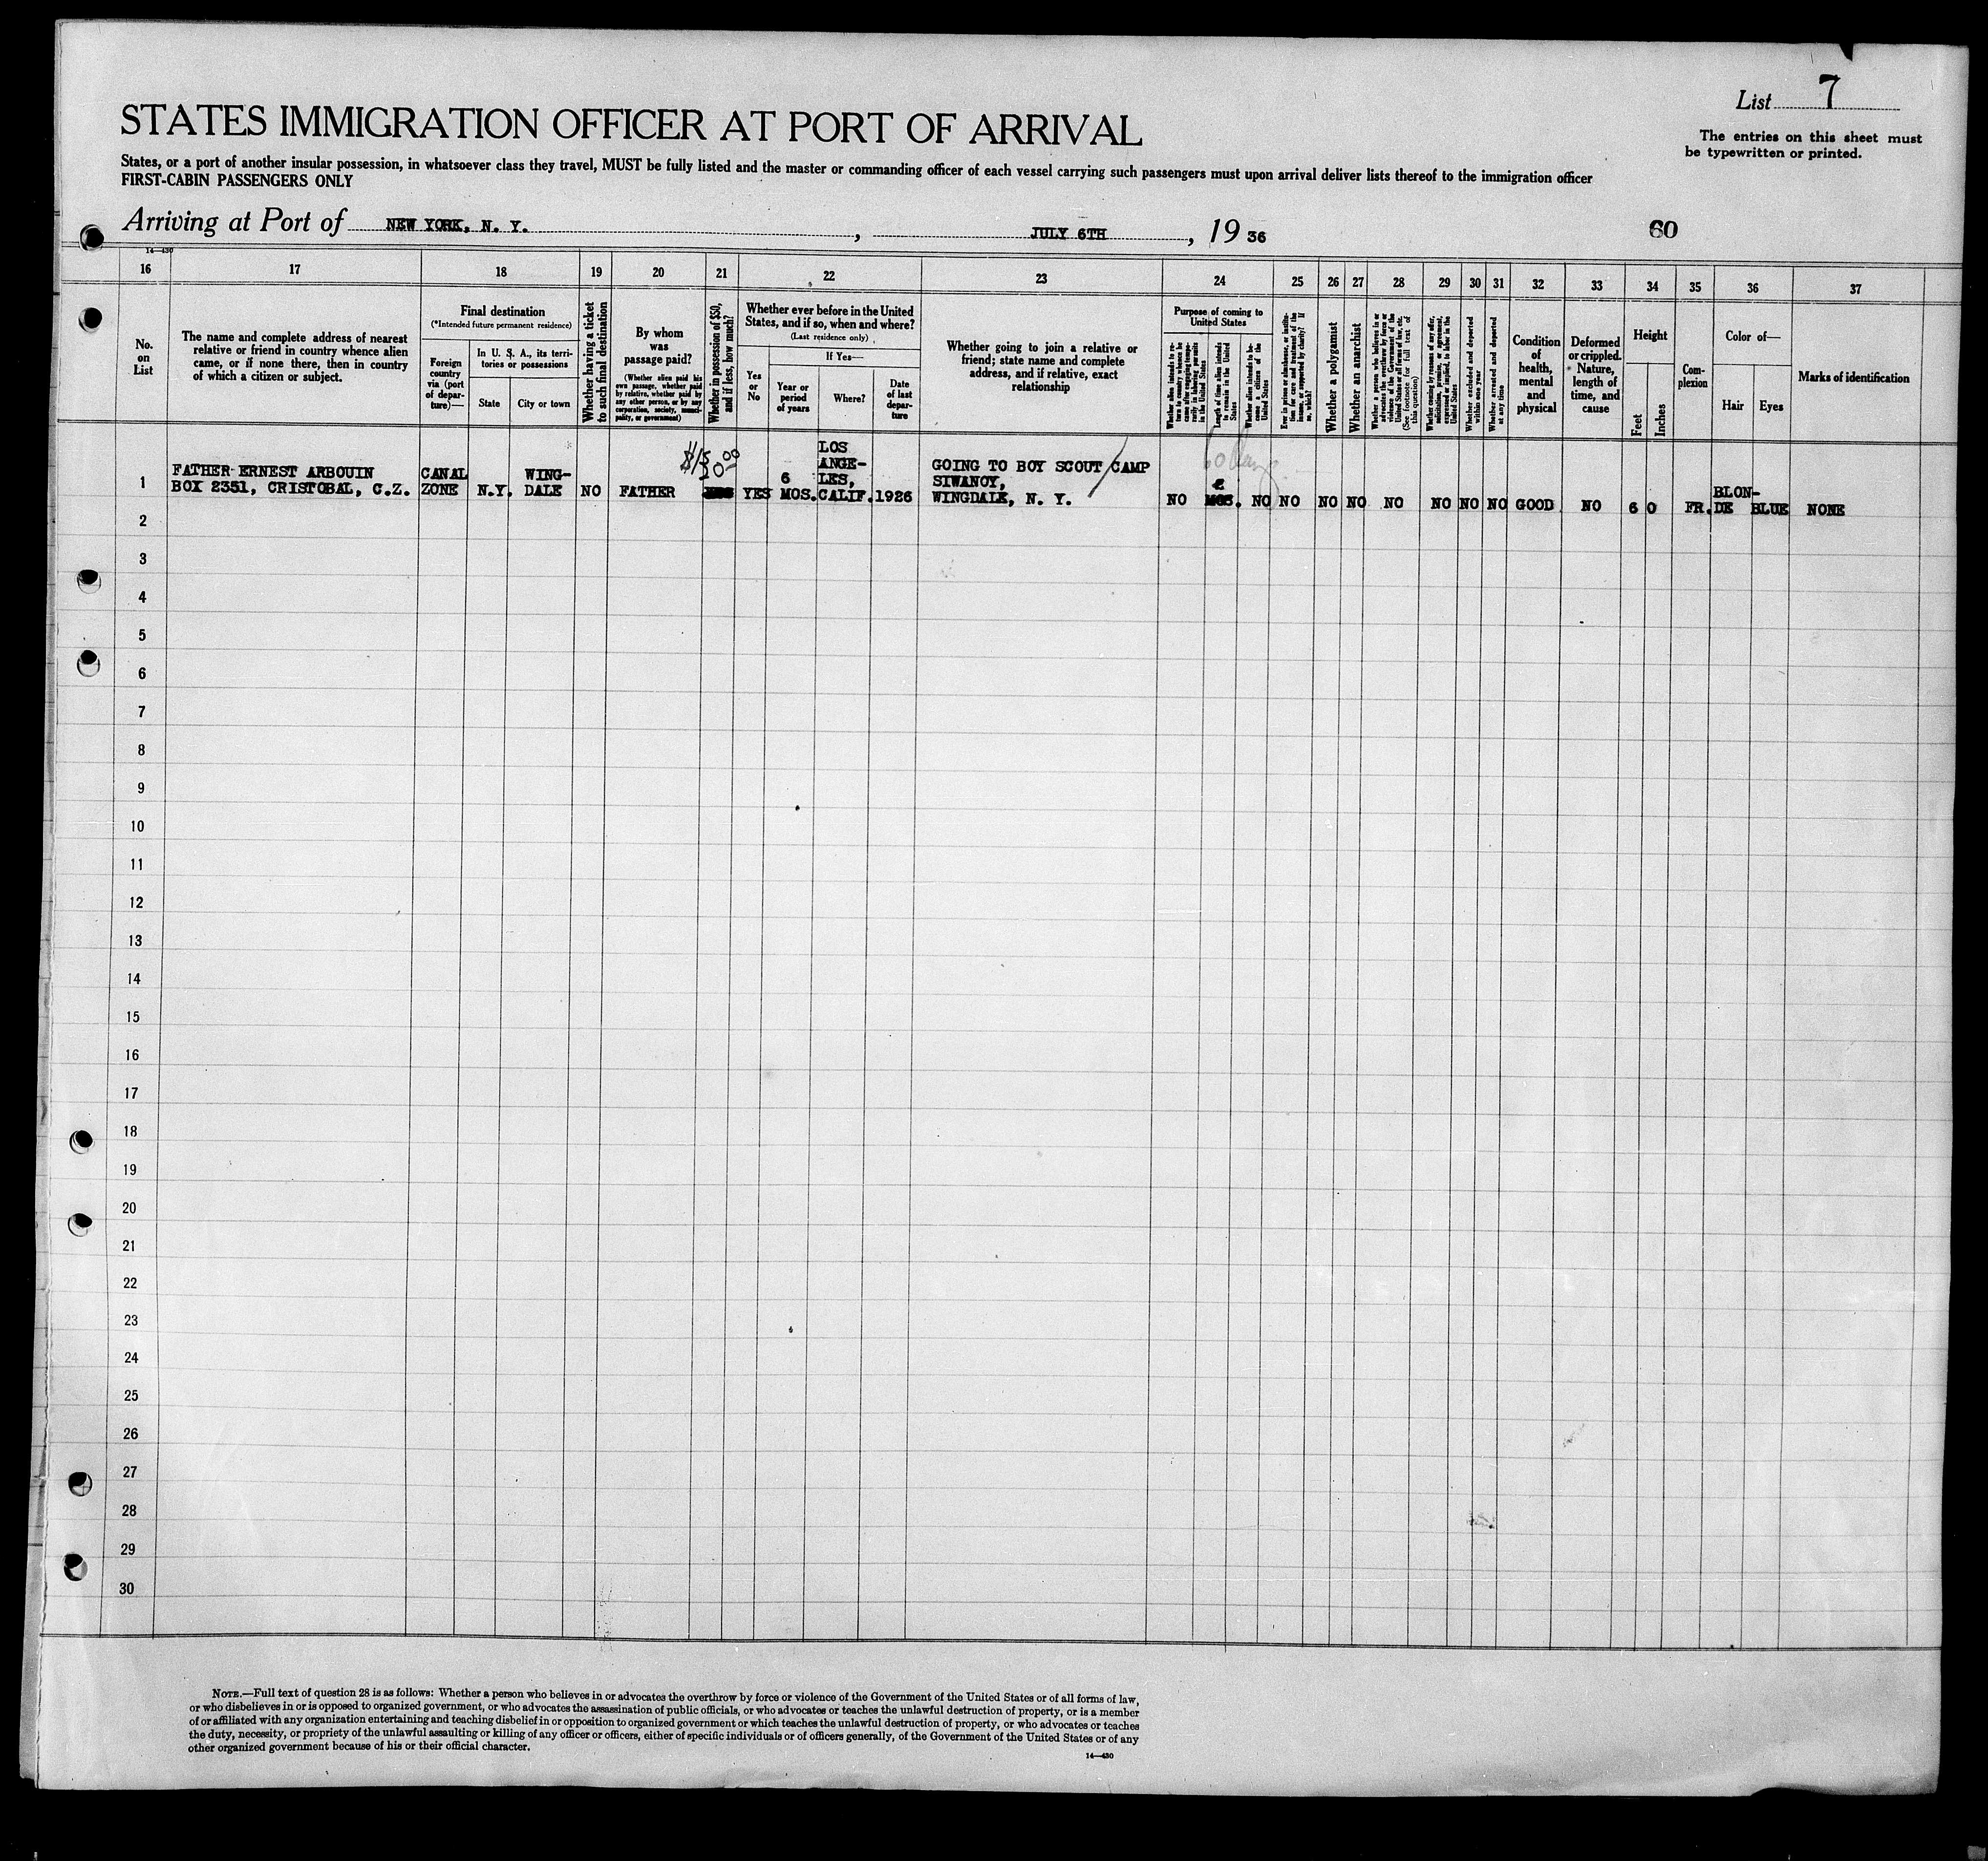 List 7
STATES IMMIGRATION OFFICER AT PORT OF ARRIVAL
The entries on this sheet must
be typewritten or printed.
States, or a port of another insular possession, in whatsoever class they travel, MUST be fully listed and the master or commanding officer of each vessel carrying such passengers must upon arrival deliver lists thereof to the immigration officer
FIRST-CABIN PASSENGERS ONLY
Arriving at Port of NEW YORK, N. Y. , JULY 6TH , 19 36
60
14—430
16 17 18 19 20 21 22 23 24 25 26 27 28 29 30 31 32 33 34 35 36 37
No.
on
List
The name and complete address of nearest
relative or friend in country whence alien
came, or if none there, then in country
of which a citizen or subject.
Final destination
(*Intended future permanent residence)
Foreign
country
via (port
of depar-
ture)—
In U. S. A., its terri-
tories or possessions
State
City or town
Whether having a ticket
to such final destination
By whom
was
passage paid?
(Whether alien paid his
own passage, whether paid
by relative, whether paid by
any other person, or by any
corporation, society, munici-
pality, or government)
Whether in possession of $50,
and if less, how much?
Whether ever before in the United
States, and if so, when and where?
(Last residence only)
Yes
or
No
If Yes—
Year or
period
of years
Where?
Date
of last
depar-
ture
Whether going to join a relative or
friend; state name and complete
address, and if relative, exact
relationship
Purpose of coming to
United States
Whether alien intends to re-
turn to country whence he
came after engaging tempo-
rarily in laboring pursuits
in the United States
Length of time alien intends
to remain in the United
States
Whether alien intends to be-
come a citizen of the
United States
Ever in prison or almshouse, or institu-
tion for care and treatment of the
insane, or supported by charity? If
so, which?
Whether a polygamist
Whether an anarchist
Whether a person who believes in or
advocates the overthrow by force or
violence of the Government of the
United States or all forms of law, etc.
(See footnote for full text of
this question)
Whether coming by reason of any offer,
solicitation, promise, or agreement,
expressed or implied, to labor in the
United States
Whether excluded and deported
within one year
Whether arrested and deported
at any time
Condition
of
health,
mental
and
physical
Deformed
or crippled.
Nature,
length of
time, and
cause
Height
Feet
Inches
Com-
plexion
Color of—
Hair
Eyes
Marks of identification
1
FATHER-ERNEST ARBOUIN
BOX 2351, CRISTOBAL, C.Z.
CANAL
ZONE
N.Y.
WING-
DALE
NO
FATHER
YES
6
MOS.
LOS
ANGE-
LES,
CALIF.
1926
GOING TO BOY SCOUT CAMP
SIWANOY,
WINGDALE, N. Y.
NO
MOS.
NO NO NO NO NO NO NO NO GOOD NO 6 0 FR.
BLON-
DE
BLUE NONE
2
3
4
5
6
7
8
9
10
11
12
13
14
15
16
17
18
19
20
21
22
23
24
25
26
27
28
29
30
NOTE.—Full text of question 28 is as follows: Whether a person who believes in or advocates the overthrow by force or violence of the Government of the United States or of all forms of law,
or who disbelieves in or is opposed to organized government, or who advocates the assassination of public officials, or who advocates or teaches the unlawful destruction of property, or is a member
of or affiliated with any organization entertaining and teaching disbelief in or opposition to organized government or which teaches the unlawful destruction of property, or who advocates or teaches
the duty, necessity, or propriety of the unlawful assaulting or killing of any officer or officers, either of specific individuals or of officers generally, of the Government of the United States or of any
other organized government because of his or their official character.
14—430